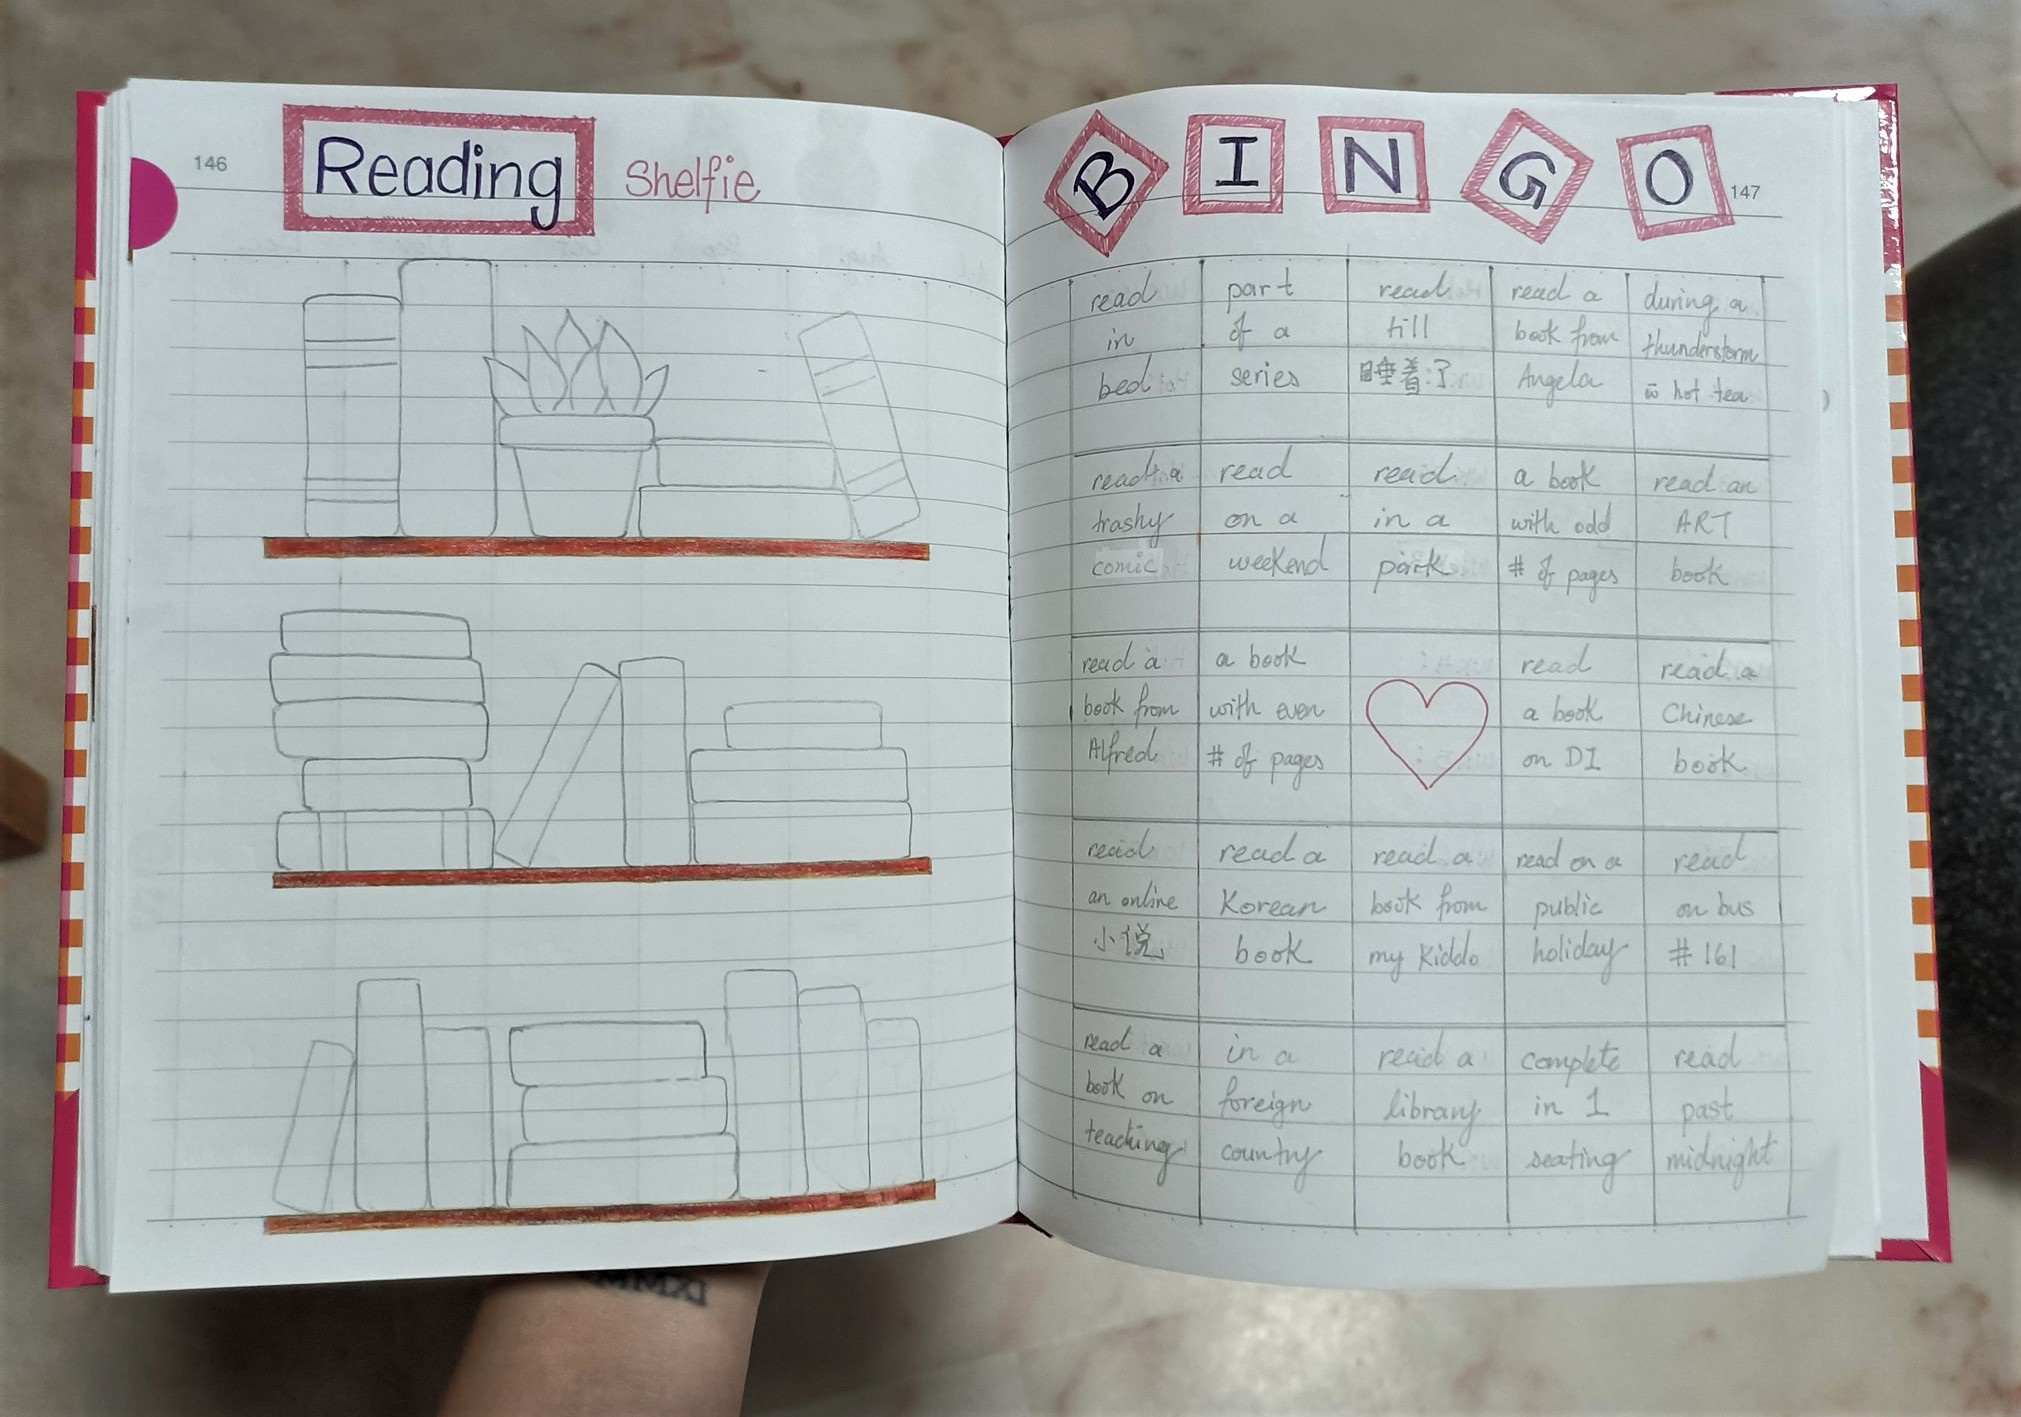 146
Reading Shelfie
B I N G O
147
read
in
bed
part
of a
series
read
till
睡着了
read a
book from
Angela
during a
thunderstorm
w̄ hot tea
read a
trashy
comic
read
on a
weekend
read
in a
park
a book
with odd
# of pages
read an
ART
book
read a
book from
Alfred
a book
with even
# of pages
read
a book
on DI
read a
Chinese
book
read
an online
小说
read a
Korean
book
read a
book from
my kiddo
read on a
public
holiday
read
on bus
# 161
read a
book on
teaching
in a
foreign
country
read a
library
book
complete
in 1
seating
read
past
midnight